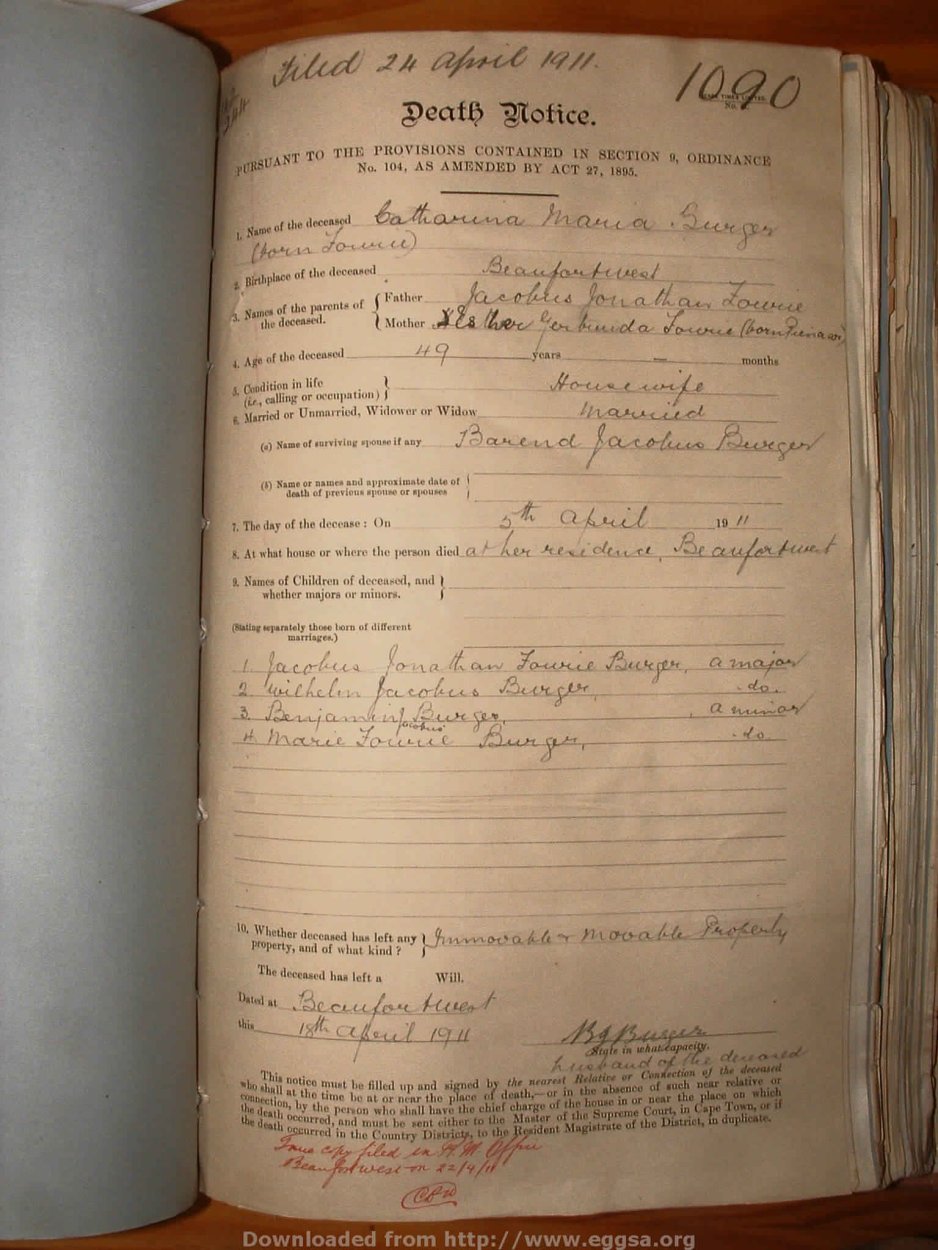 Filed 24 April 1911.
1090
CAPE TIMES LIMITED.
Death Notice.
PURSUANT TO THE PROVISIONS CONTAINED IN SECTION 9, ORDINANCE
No. 104, AS AMENDED BY ACT 27, 1895.
1. Name of the deceased Catharina Maria Burger
(born Fourie)
2. Birthplace of the deceased Beaufortwest
3. Names of the parents of the deceased. { Father Jacobus Jonathan Fourie
Mother Esther Gertruida Fourie (born Pienaar)
4. Age of the deceased 49 years — months
5. Condition in life
(i.e., calling or occupation) } Housewife
6. Married or Unmarried, Widower or Widow married
(a) Name of surviving spouse if any Barend Jacobus Burger
(b) Name or names and approximate date of
death of previous spouse or spouses
7. The day of the decease: On 5th April 1911
8. At what house or where the person died at her residence, Beaufortwest
9. Names of Children of deceased, and
whether majors or minors. }
(Stating separately those born of different
marriages.)
1. Jacobus Jonathan Fourie Burger, a major
2. Wilhelm Jacobus Burger, .do.
3. Benjamin Jacobus Burger, , a minor
4. Marie Fourie Burger, .do.
10. Whether deceased has left any
property, and of what kind? } Immovable & Movable Property
The deceased has left a Will.
Dated at Beaufortwest
this 18th April 1911
BJBurger
State in what capacity.
husband of the deceased
This notice must be filled up and signed by the nearest Relative or Connection of the deceased
who shall at the time be at or near the place of death,—or in the absence of such near relative or
connection, by the person who shall have the chief charge of the house in or near the place on which
the death occurred, and must be sent either to the Master of the Supreme Court, in Cape Town, or if
the death occurred in the Country Districts, to the Resident Magistrate of the District, in duplicate.
True copy filed in R M Office
Beaufortwest on 22/4/11
Downloaded from http://www.eggsa.org